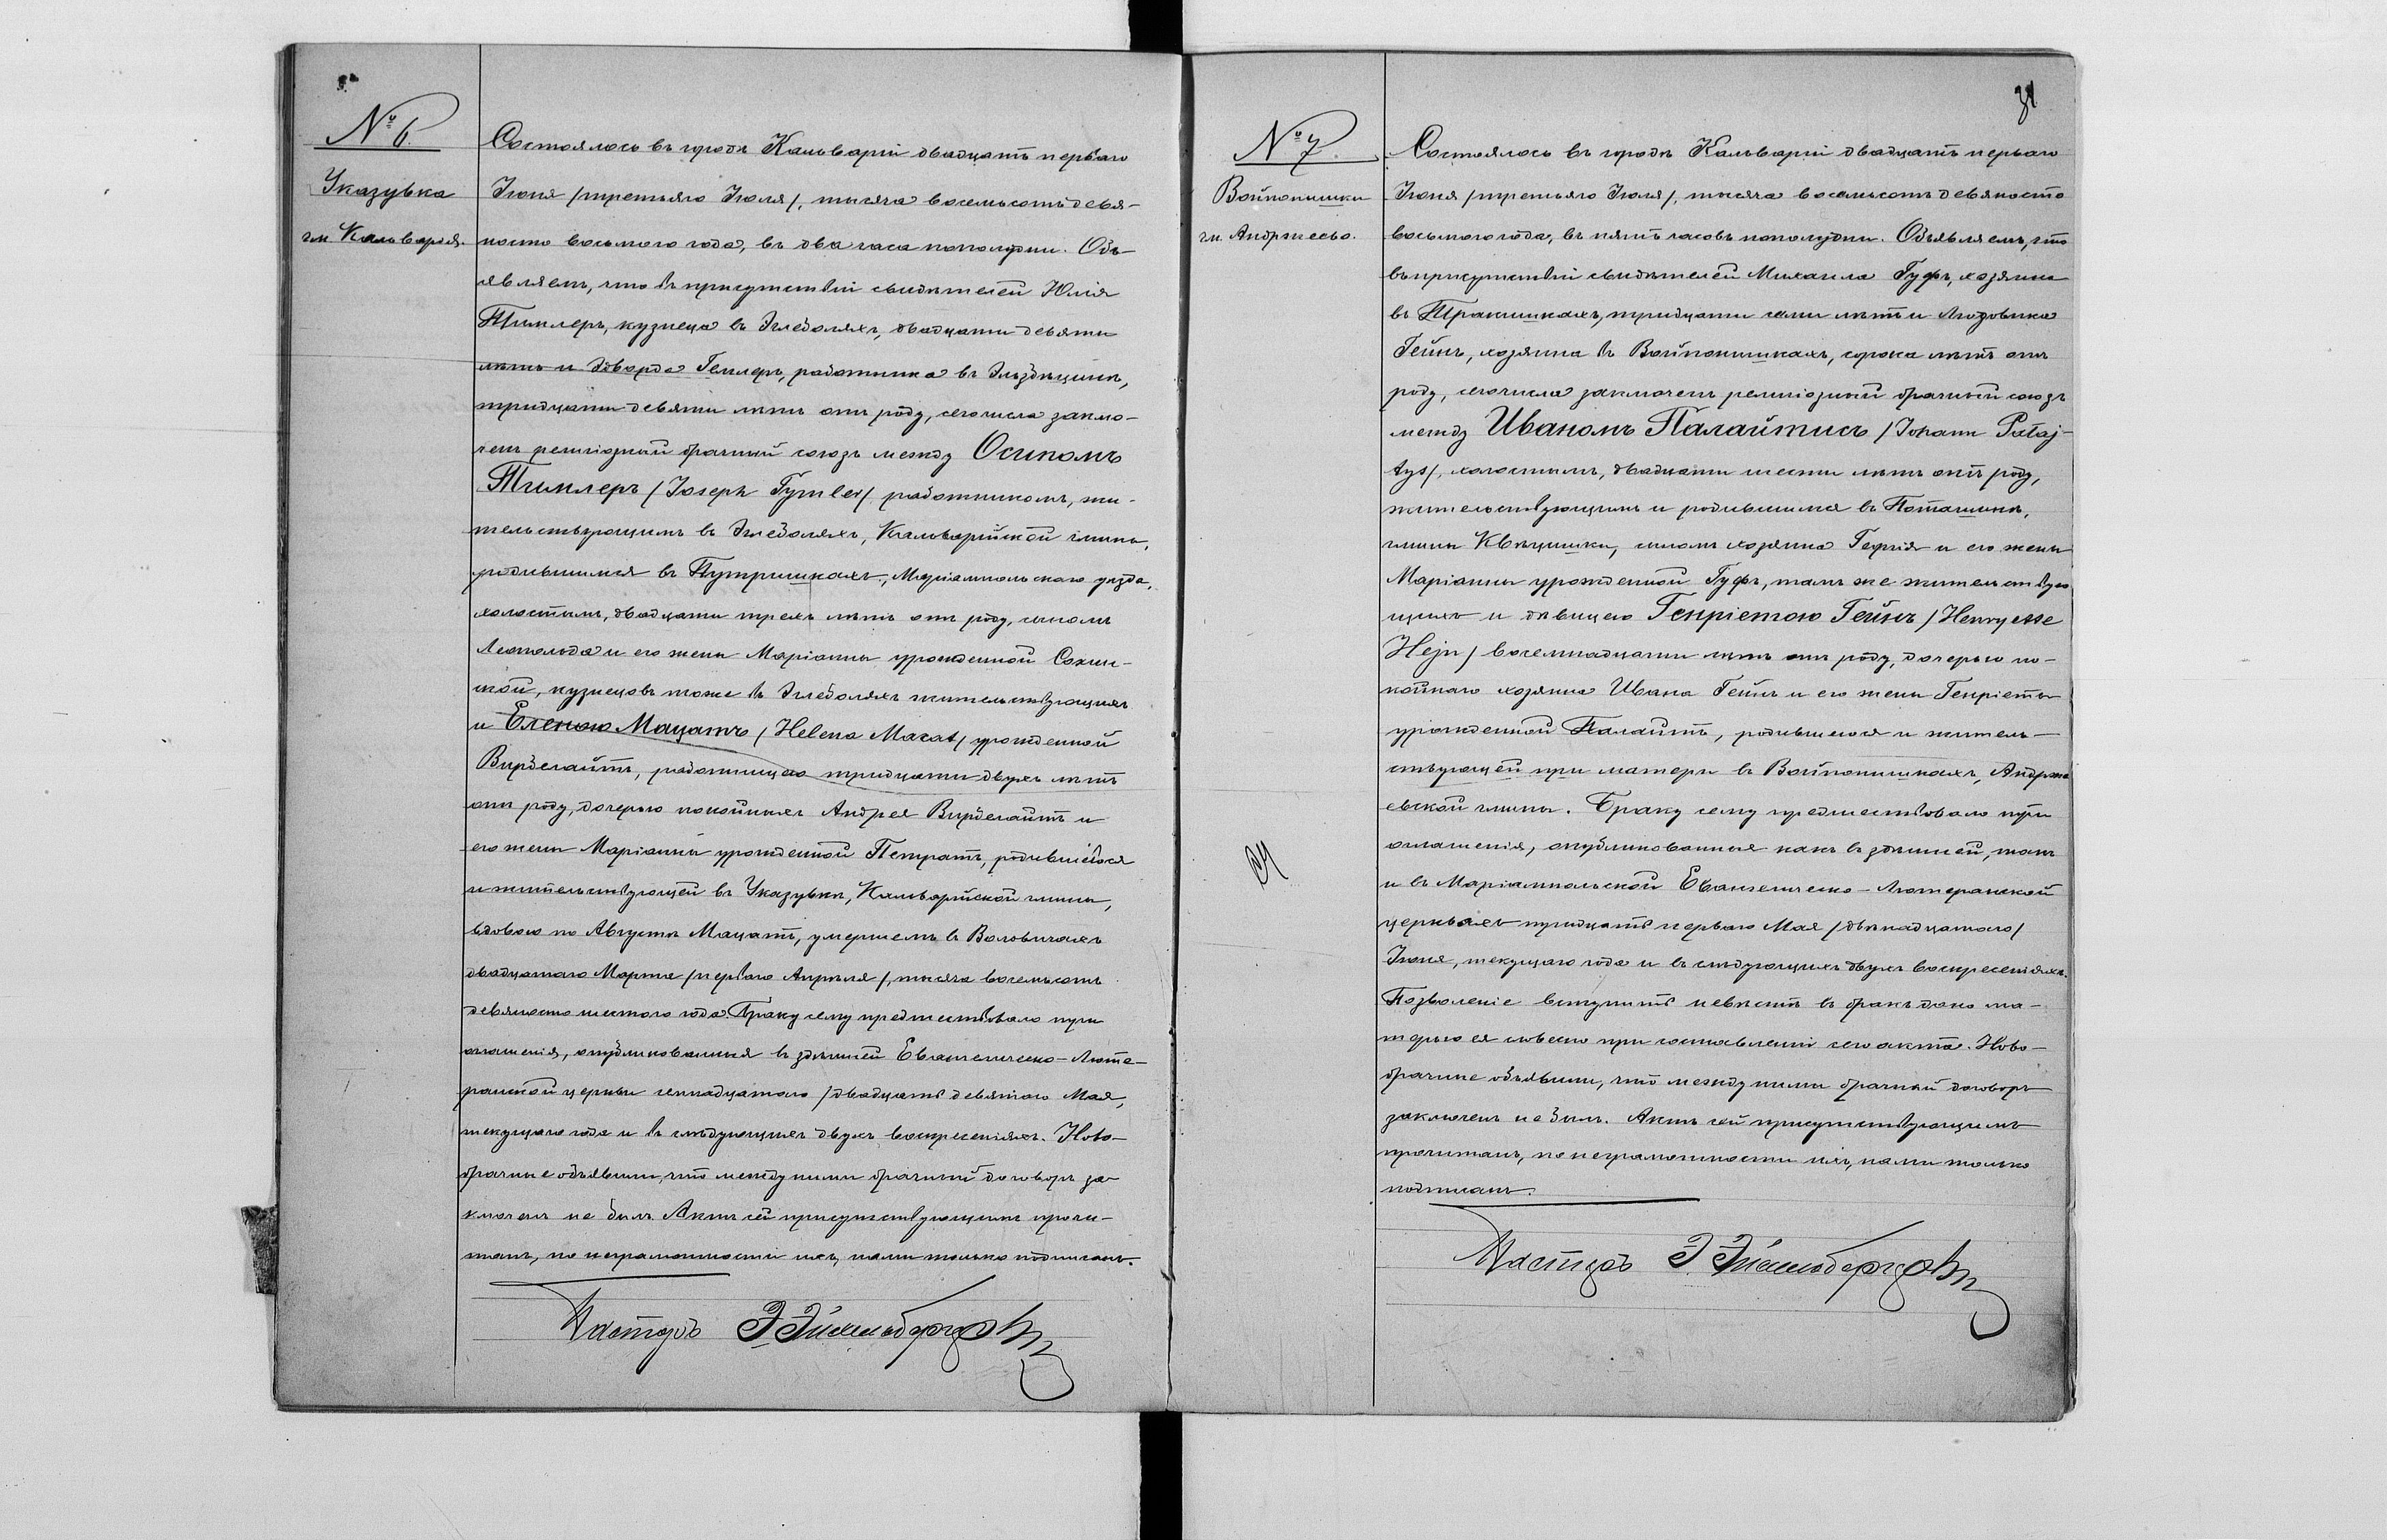 № 6.
Указувка
гм. Кальварія.
Состоялось въ городѣ Кальваріи двадцать перваго
Іюня /третьяго Іюля/, тысяча восемьсотъ девя-
носто восьмого года, въ два часа пополудни. Объ-
являемъ, что въ присутствіи свидѣтелей Юлія
Тимлеръ, кузнеца въ двадцати девяти
лѣтъ и Эдварда Гемлеръ, работника въ
тридцати девяти лѣтъ отъ роду, сего числа заклю-
ченъ религіозный брачный союзъ между Осипомъ
Тимлеръ /Joseph Tymler/ работникомъ, жи-
тельствующимъ въ Кальварійской гмины,
родившимся въ Путришкахъ, Маріампольскаго уѣзда,
холостымъ, двадцати трехъ лѣтъ отъ роду, сыномъ
Леопольда и его жены Маріанны урожденной
кузнецовъ тоже въ жительствующихъ
и Еленою Мацатъ /Helena Macat/ урожденной
Вирделайтъ, работницею тридцати двухъ лѣтъ
отъ роду, дочерью покойныхъ Андрея Вирделайтъ и
его жены Маріанны урожденной Петратъ, родившеюся
и жительствующей въ Указувкѣ, Кальварійской гмины,
вдовою по Августѣ Мацатъ, умершемъ въ Воловичахъ
двадцатаго Марта /перваго Апрѣля/, тысяча восемьсотъ
девяносто шестого года. Браку сему предшествовало три
оглашенія, опубликованныя въ здѣшней Евангелическо-Люте-
ранской церкви семнадцатаго /двадцать девятаго Мая,
текущаго года и въ слѣдующихъ двухъ воскресеніяхъ. Ново-
брачные объявили, что между ними брачный договоръ за-
ключенъ не былъ. Актъ сей присутствующимъ прочи-
танъ, по неграмотности ихъ, нами только подписанъ.
Пасторъ
31
№ 7.
Войпонишки
гм. Андржеево.
Состоялось въ городѣ Кальваріи двадцать перваго
Іюня /третьяго Іюля/, тысяча восемьсотъ девяносто
восьмого года, въ пять часовъ пополудни. Объявляемъ, что
въ присутствіи свидѣтелей Михаила Гуфъ, хозяина
въ Транишкахъ, тридцати семи лѣтъ и Людовика
Гейнъ, хозяина въ Войпонишкахъ, сорока лѣтъ отъ
роду, сего числа заключенъ религіозный брачный союзъ
между Иваномъ Палайтисъ /Johann Pałaj-
tys/, холостымъ, двадцати шести лѣтъ отъ роду,
жительствующимъ и родившимся въ Поташинѣ,
гмины Квѣцишки, сыномъ хозяина Георгія и его жены
Маріанны урожденной Гуфъ, тамъ же жительствую-
щихъ и дѣвицею Генріетою Гейнъ /Henryette
Hejn/ восемнадцати лѣтъ отъ роду, дочерью по-
койнаго хозяина Ивана Гейнъ и его жены Генріеты
урожденной Палайтъ, родившеюся и житель-
ствующей при матери въ Войпонишкахъ, Андрже-
евской гмины. Браку сему предшествовало три
оглашенія, опубликованныя какъ въ здѣшней, такъ
и въ Маріампольской Евангелическо-Лютеранской
церквахъ тридцать перваго Мая /двѣнадцатаго/
Іюня, текущаго года и въ слѣдующихъ двухъ воскресеніяхъ.
Позволеніе вступить невѣстѣ въ бракъ дано ма-
терью ея словесно при составленіи сего акта. Ново-
брачные объявили, что между ними брачный договоръ
заключенъ не былъ. Актъ сей присутствующимъ
прочитанъ, по неграмотности ихъ, нами только
подписанъ.
Пасторъ